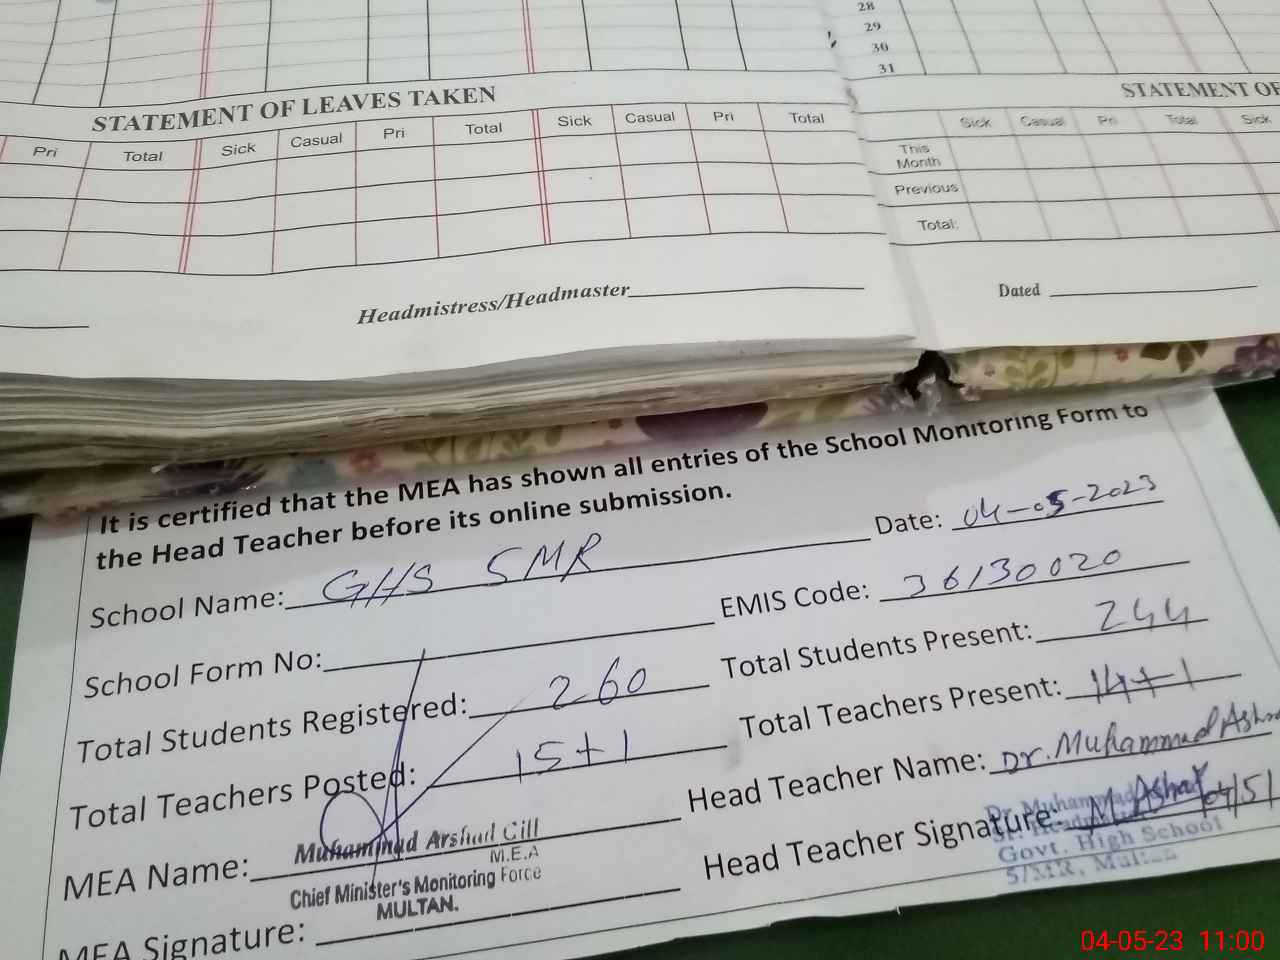 28
29
30
31
STATEMENT OF LEAVES TAKEN
Pri Total Sick Casual Pri Total Sick Casual Pri Total
Headmistress/Headmaster
STATEMENT OF
Sick Casual Pri Total Sick
This Month
Previous
Total:
Dated
It is certified that the MEA has shown all entries of the School Monitoring Form to
the Head Teacher before its online submission.
School Name: GHS 5MR Date: 04-05-2023
School Form No: EMIS Code: 36130020
Total Students Registered: 260 Total Students Present: 244
Total Teachers Posted: 15+1 Total Teachers Present: 14+1
MEA Name: Muhammad Arshad Gill Head Teacher Name: Dr. Muhammad
M.E.A
Chief Minister's Monitoring Force
MULTAN.
MEA Signature: Head Teacher Signature: M. Ashraf
Dr. Muhammad
Govt. High School
5/MR, Multan
04-05-23 11:00